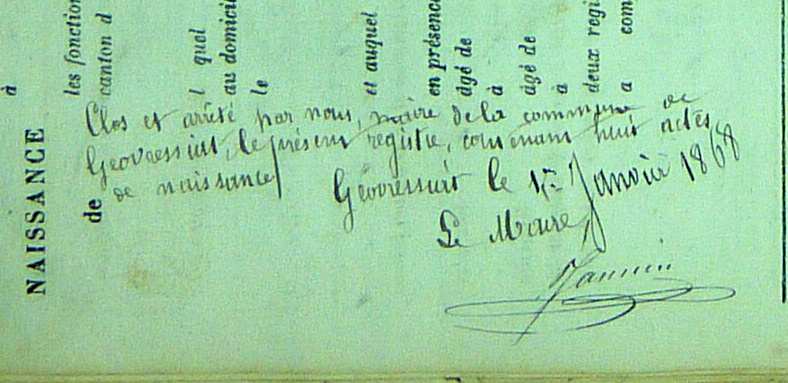 à
les fonction
canton d
l quel
au domicil
le
et auquel
en présence
âgé de
à
âgé de
à
deux regi
a com
NAISSANCE
de
Clos et arrêté par nous, maire de la commune de
Géovressiat, le présent registre, contenant huit actes
de naissance
Géovressiat le 1er Janvier 1868
Le Maire,